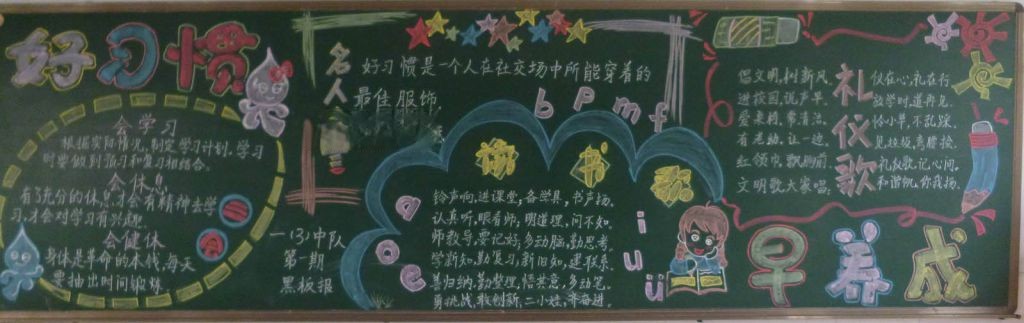 好习惯
会学习
根据实际情况,制定学习计划.学习
时要做到预习和复习相结合。
会休息
有了充分的休息,才会有精神去学
习,才会对学习有兴趣。
会健体
身体是革命的本钱,每天
要抽出时间锻炼.
名人
好习惯是一个人在社交场中所能穿着的
最佳服饰.
一(3)中队
第一期
黑板报
b p m f
a o e
i u ü
书歌
铃声响,进课堂,备学具,书声扬.
认真听,眼看师,明道理,问不知.
师教导,要记好,多动脑,勤思考.
学新知,勤复习,新旧知,建联系.
善归纳,勤整理,悟其意,多动笔.
勇挑战,敢创新,二小娃,齐奋进.
礼仪歌
倡文明,树新风
进校园,说声早.
爱桌椅,常清洁.
有走动,让一边.
红领巾,飘胸前.
文明歌大家唱.
仪在心,礼在行
放学时,道再见.
怜小草,不乱踩.
见垃圾,弯腰捡.
礼仪歌,记心间.
和谐帆,你我扬.
早养成